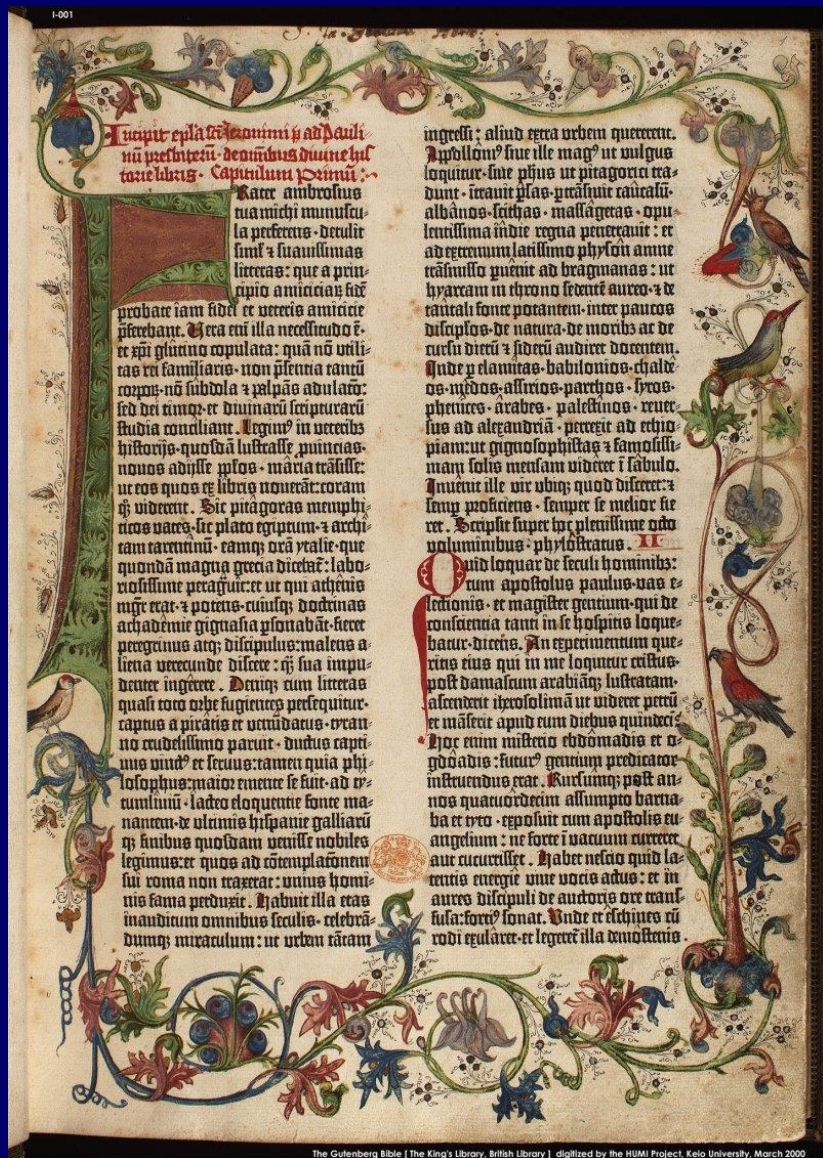 I-001
Incipit epl'a sci Jeronimi p̄ ad Pauli-
nū presbiterū · de omībus divine his-
torie libris · Capitulum Primū :
Frater ambrosius
tua michi munuscu-
la perferens · detulit
siml' ⁊ suavissimas
litteras : que a prin-
cipio amiciciaꝝ fidē
probate iam fidei et veteris amicicie
p̄ferebant . Vera em̄ illa necessitudo ē ·
et xp̄i glutino copulata : quā nō utili-
tas rei familiaris · non p̄sentia tantū
corpoꝝ · nō subdola ⁊ palpās adulato :
sed dei timor · et divinarū scripturarū
studia conciliant . Legim⁹ in veterib⁊
historijs · quosdā lustrasse p̱vincias ·
novos adijsse pp̄los · maria trāsisse :
ut eos quos ex libris noverāt : coram
qꝫ viderent . Sic pitagoras memphi-
ticos vates · sic plato egiptum · ⁊ archi-
tam tarentinū · eamqꝫ orā ytalie · que
quondā magna grecia dicebat̄ : labo-
riosissime peragr̄vit : et ut qui athenis
mgr̄ erat · ⁊ potens · cuiusqꝫ doctrinas
achademie gignasia p̱sonabāt · fieret
peregrinus atqꝫ discipulus : malens a-
liena verecunde discere : qꝫ sua impu-
denter ingerere . Deniqꝫ cum litteras
quasi toto orbe fugientes persequitur ·
captus a piratis et venūdatus · tyran-
no crudelissimo paruit · ductus capti-
vus vinct⁹ et servus : tamen quia phi-
losophus : maior emente se fuit · ad ty-
tumlivium · lacteo eloquentie fonte ma-
nantem · de ultimis hispanie galliarū
qꝫ finibus quosdam venisse nobiles
legimus : et quos ad cōtemplatōnem
sui roma non traxerat : unius homi-
nis fama perduxit . Habuit illa etas
inauditum omnibus seculis · celebrā-
dumqꝫ miraculum : ut urbem tātam
ingressi : aliud extra urbem quererent .
Appollom⁹ sive ille mag⁹ ut vulgus
loquitur · sive ph̄us ut pitagorici tra-
dunt · ītravit p̱sas · p̱trāsivit caucasū ·
albanos · scithas · massagetas · opu-
lentissima indie regna penetravit : et
ad extremum latissimo physon amne
trāsmisso p̱venit ad bragmanas : ut
hyarcam in throno sedentē aureo · ⁊ de
tantali fonte potantem · inter paucos
discip̄los · de natura · de moribꝫ ac de
cursu dierū ⁊ siderū audiret docentem .
Inde p̱ elamitas · babilonios · chalde-
os · medos · assirios · parthos · syros ·
phenices · arabes · palestinos · rever-
sus ad alexandriā · perrexit ad ethio-
piam : ut gignosophistas ⁊ famosissi-
mam solis mensam videret ī sabulo .
Invenit ille vir ubiqꝫ quod disceret : ⁊
semp̱ proficiens · semper se melior fie-
ret . Scripsit super hoc plenissime octo
voluminibus · phylostratus . II
Quid loquar de seculi hominibꝫ :
cum apostolus paulus · vas e-
lectionis · et magister gentium · qui de
conscientia tanti in se hospitis loque-
batur · dicens . An experimentum que-
ritis eius qui in me loquitur cristus ·
post damascum arabiāqꝫ lustratam ·
ascenderit iherosolimā ut videret petrū
et māserit apud eum diebus quindeci .
Hoc enim misterio ebdomadis et o-
gdoadis : futur⁹ gentium predicator
instruendus erat . Rursumqꝫ post an-
nos quatuordecim assumpto barna-
ba et tyto · exposuit cum apostolis eu-
angelium : ne forte ī vacuum curreret
aut cucurrisset . Habet nescio quid la-
tentis energie vive vocis actus : et in
aures discipuli de auctoris ore trans-
fusa : forti⁹ sonat . Unde et eschines cū
rodi exularet · et legeret̄ illa demostenis ·
The Gutenberg Bible [ The King's Library, British Library ] digitized by the HUMI Project, Keio University, March 2000